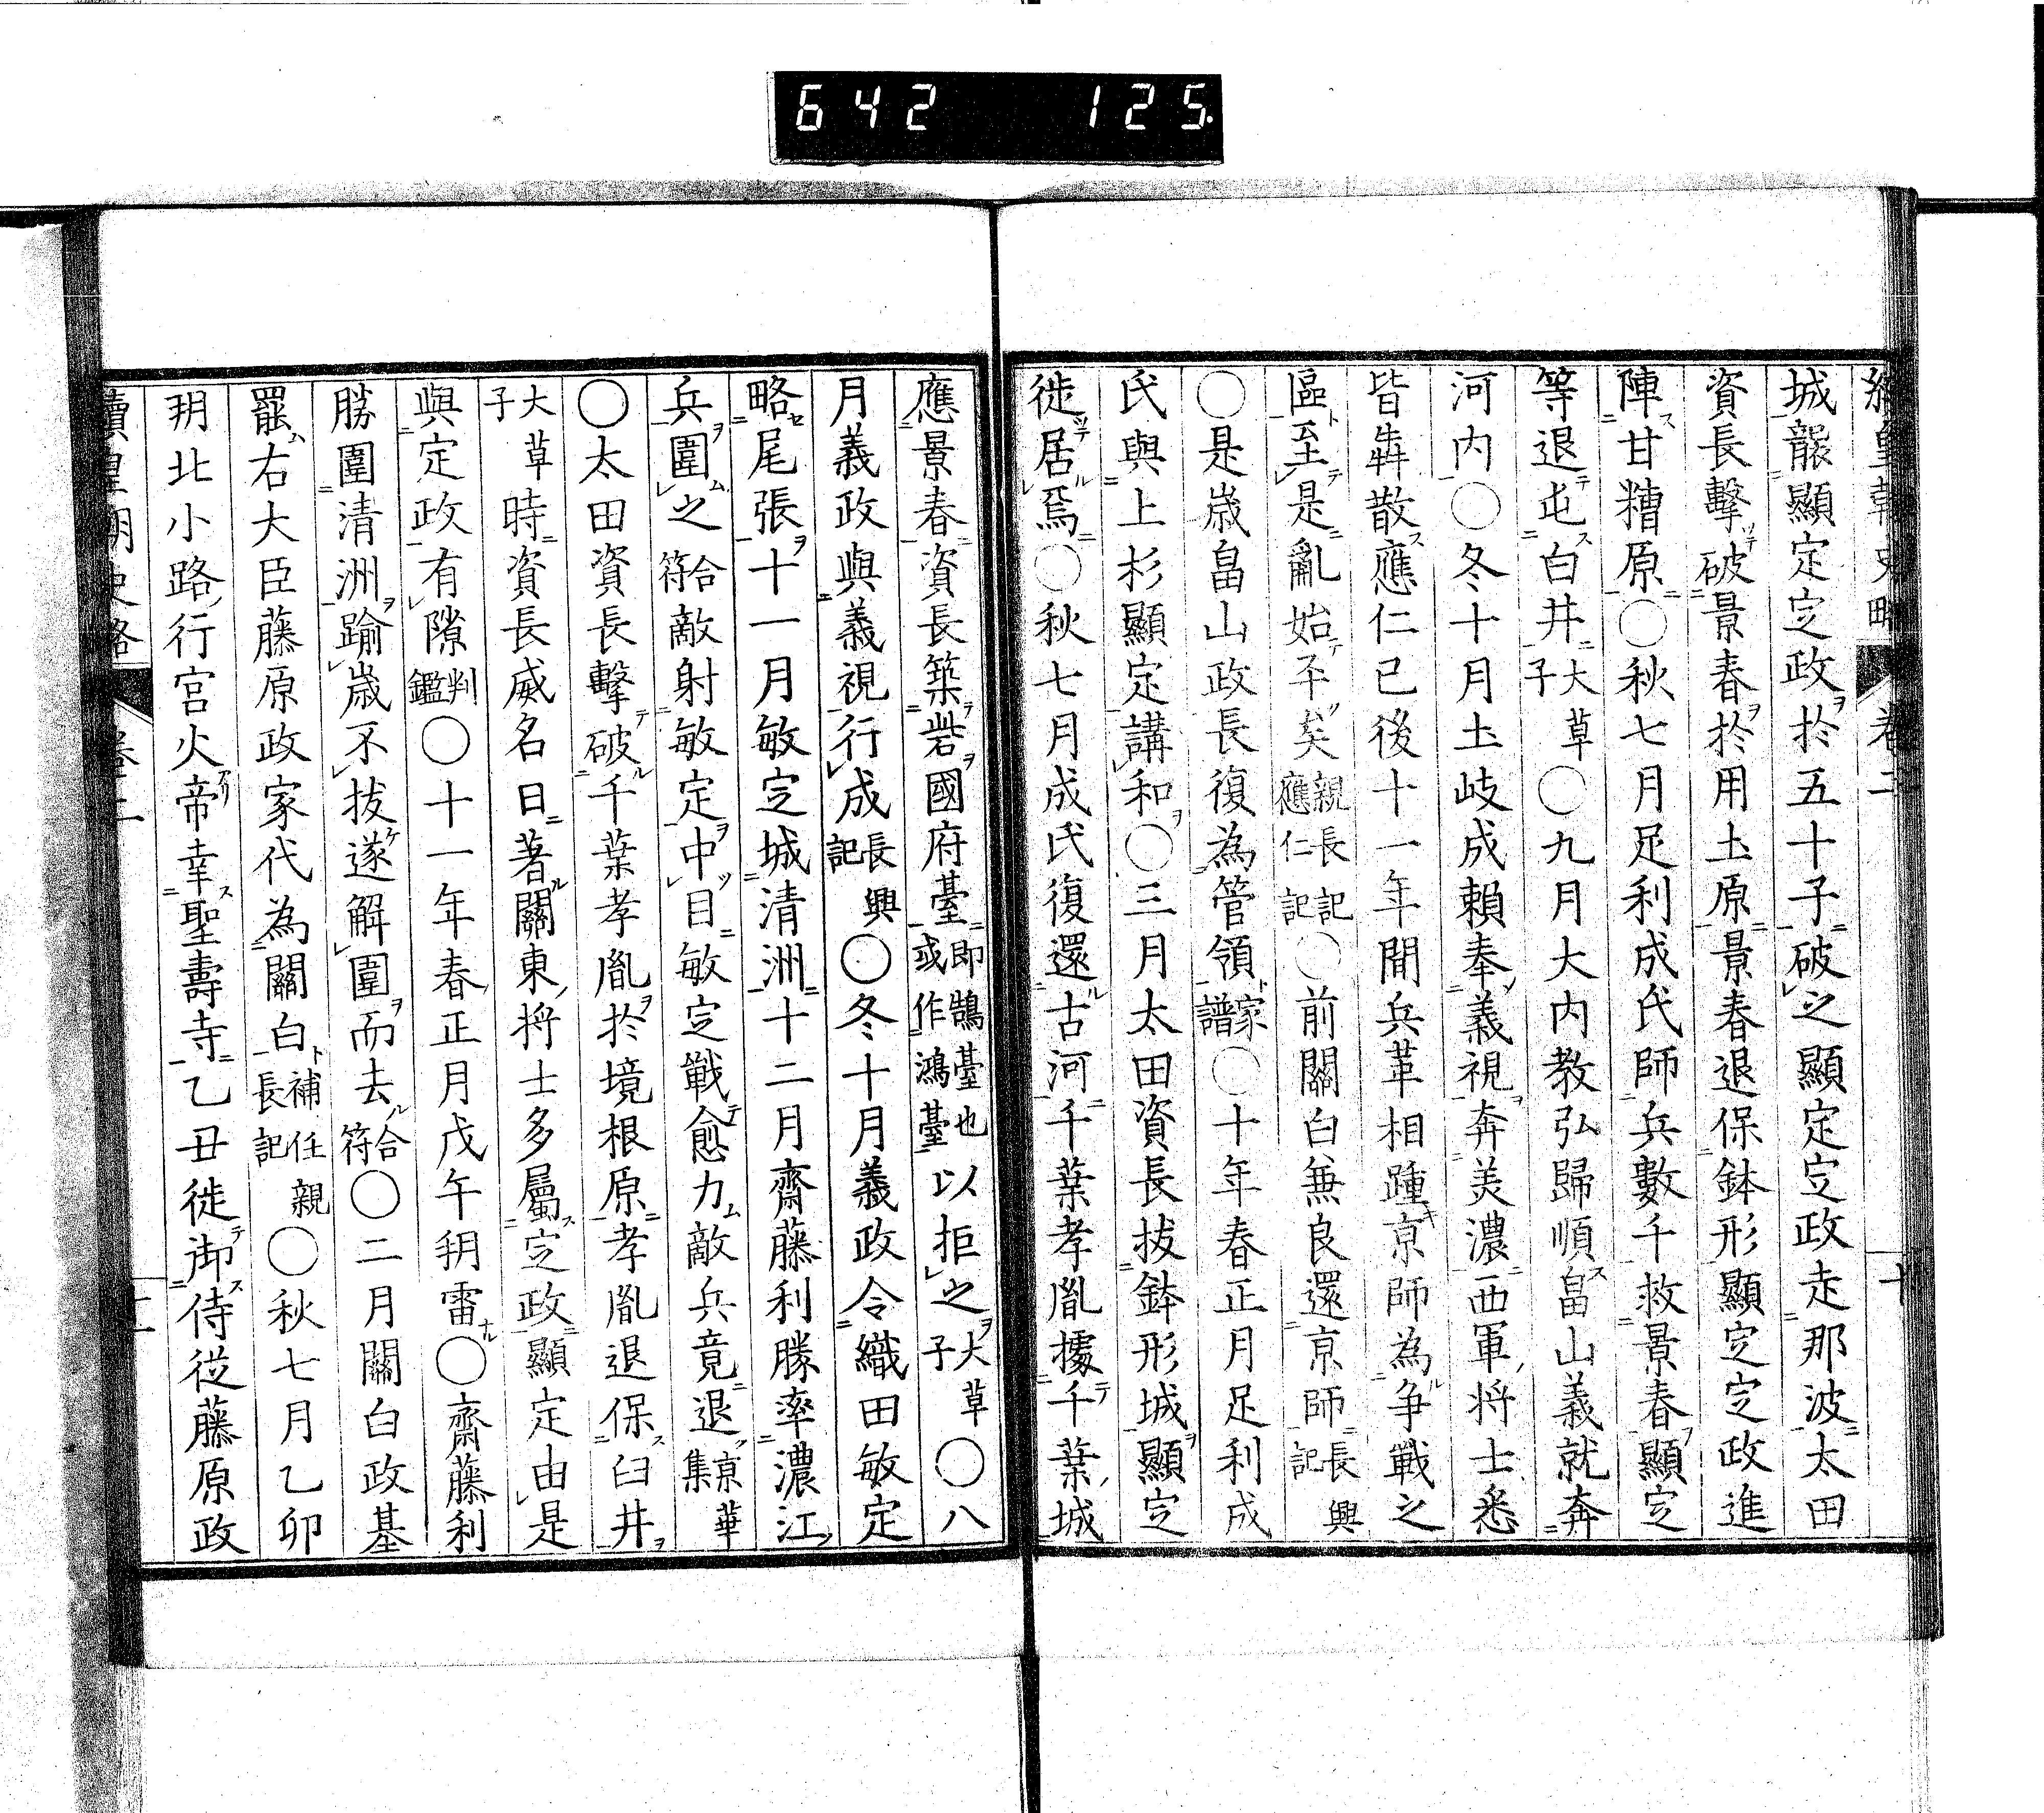 642 125.
續皇朝史略 卷二 十
城襲顯定定政於五十子破之顯定定政走那波太田
資長擊破景春於用土原景春退保鉢形顯定定政進
陣甘糟原〇秋七月足利成氏師兵數千救景春顯定
等退屯白井大草子〇九月大內教弘歸順畠山義就奔
河內〇冬十月土岐成賴奉義視奔美濃西軍將士悉
皆犇散應仁已後十一年間兵革相踵京師為爭戰之
區至是亂始平矣親長記應仁記〇前關白兼良還京師長興記
〇是歲畠山政長復為管領家譜〇十年春正月足利成
氏與上杉顯定講和〇三月太田資長拔鉢形城顯定
徙居焉〇秋七月成氏復還古河千葉孝胤據千葉城
應景春資長築砦國府臺即鵠臺也或作鴻臺以拒之大草子〇八
月義政與義視行成長興記〇冬十月義政令織田敏定
略尾張十一月敏定城清洲十二月齋藤利勝率濃江
兵圍之合符敵射敏定中目敏定戰愈力敵兵竟退京華集
〇太田資長擊破千葉孝胤於境根原孝胤退保臼井
大草子時資長威名日著關東將士多屬定政顯定由是
與定政有隙判鑑〇十一年春正月戊午朔雷〇齋藤利
勝圍清洲踰歲不拔遂解圍而去合符〇二月關白政基
罷右大臣藤原政家代為關白補任親長記〇秋七月乙卯
朔北小路行宮火帝幸聖壽寺乙丑徙御侍從藤原政
續皇朝史略 卷二 十一